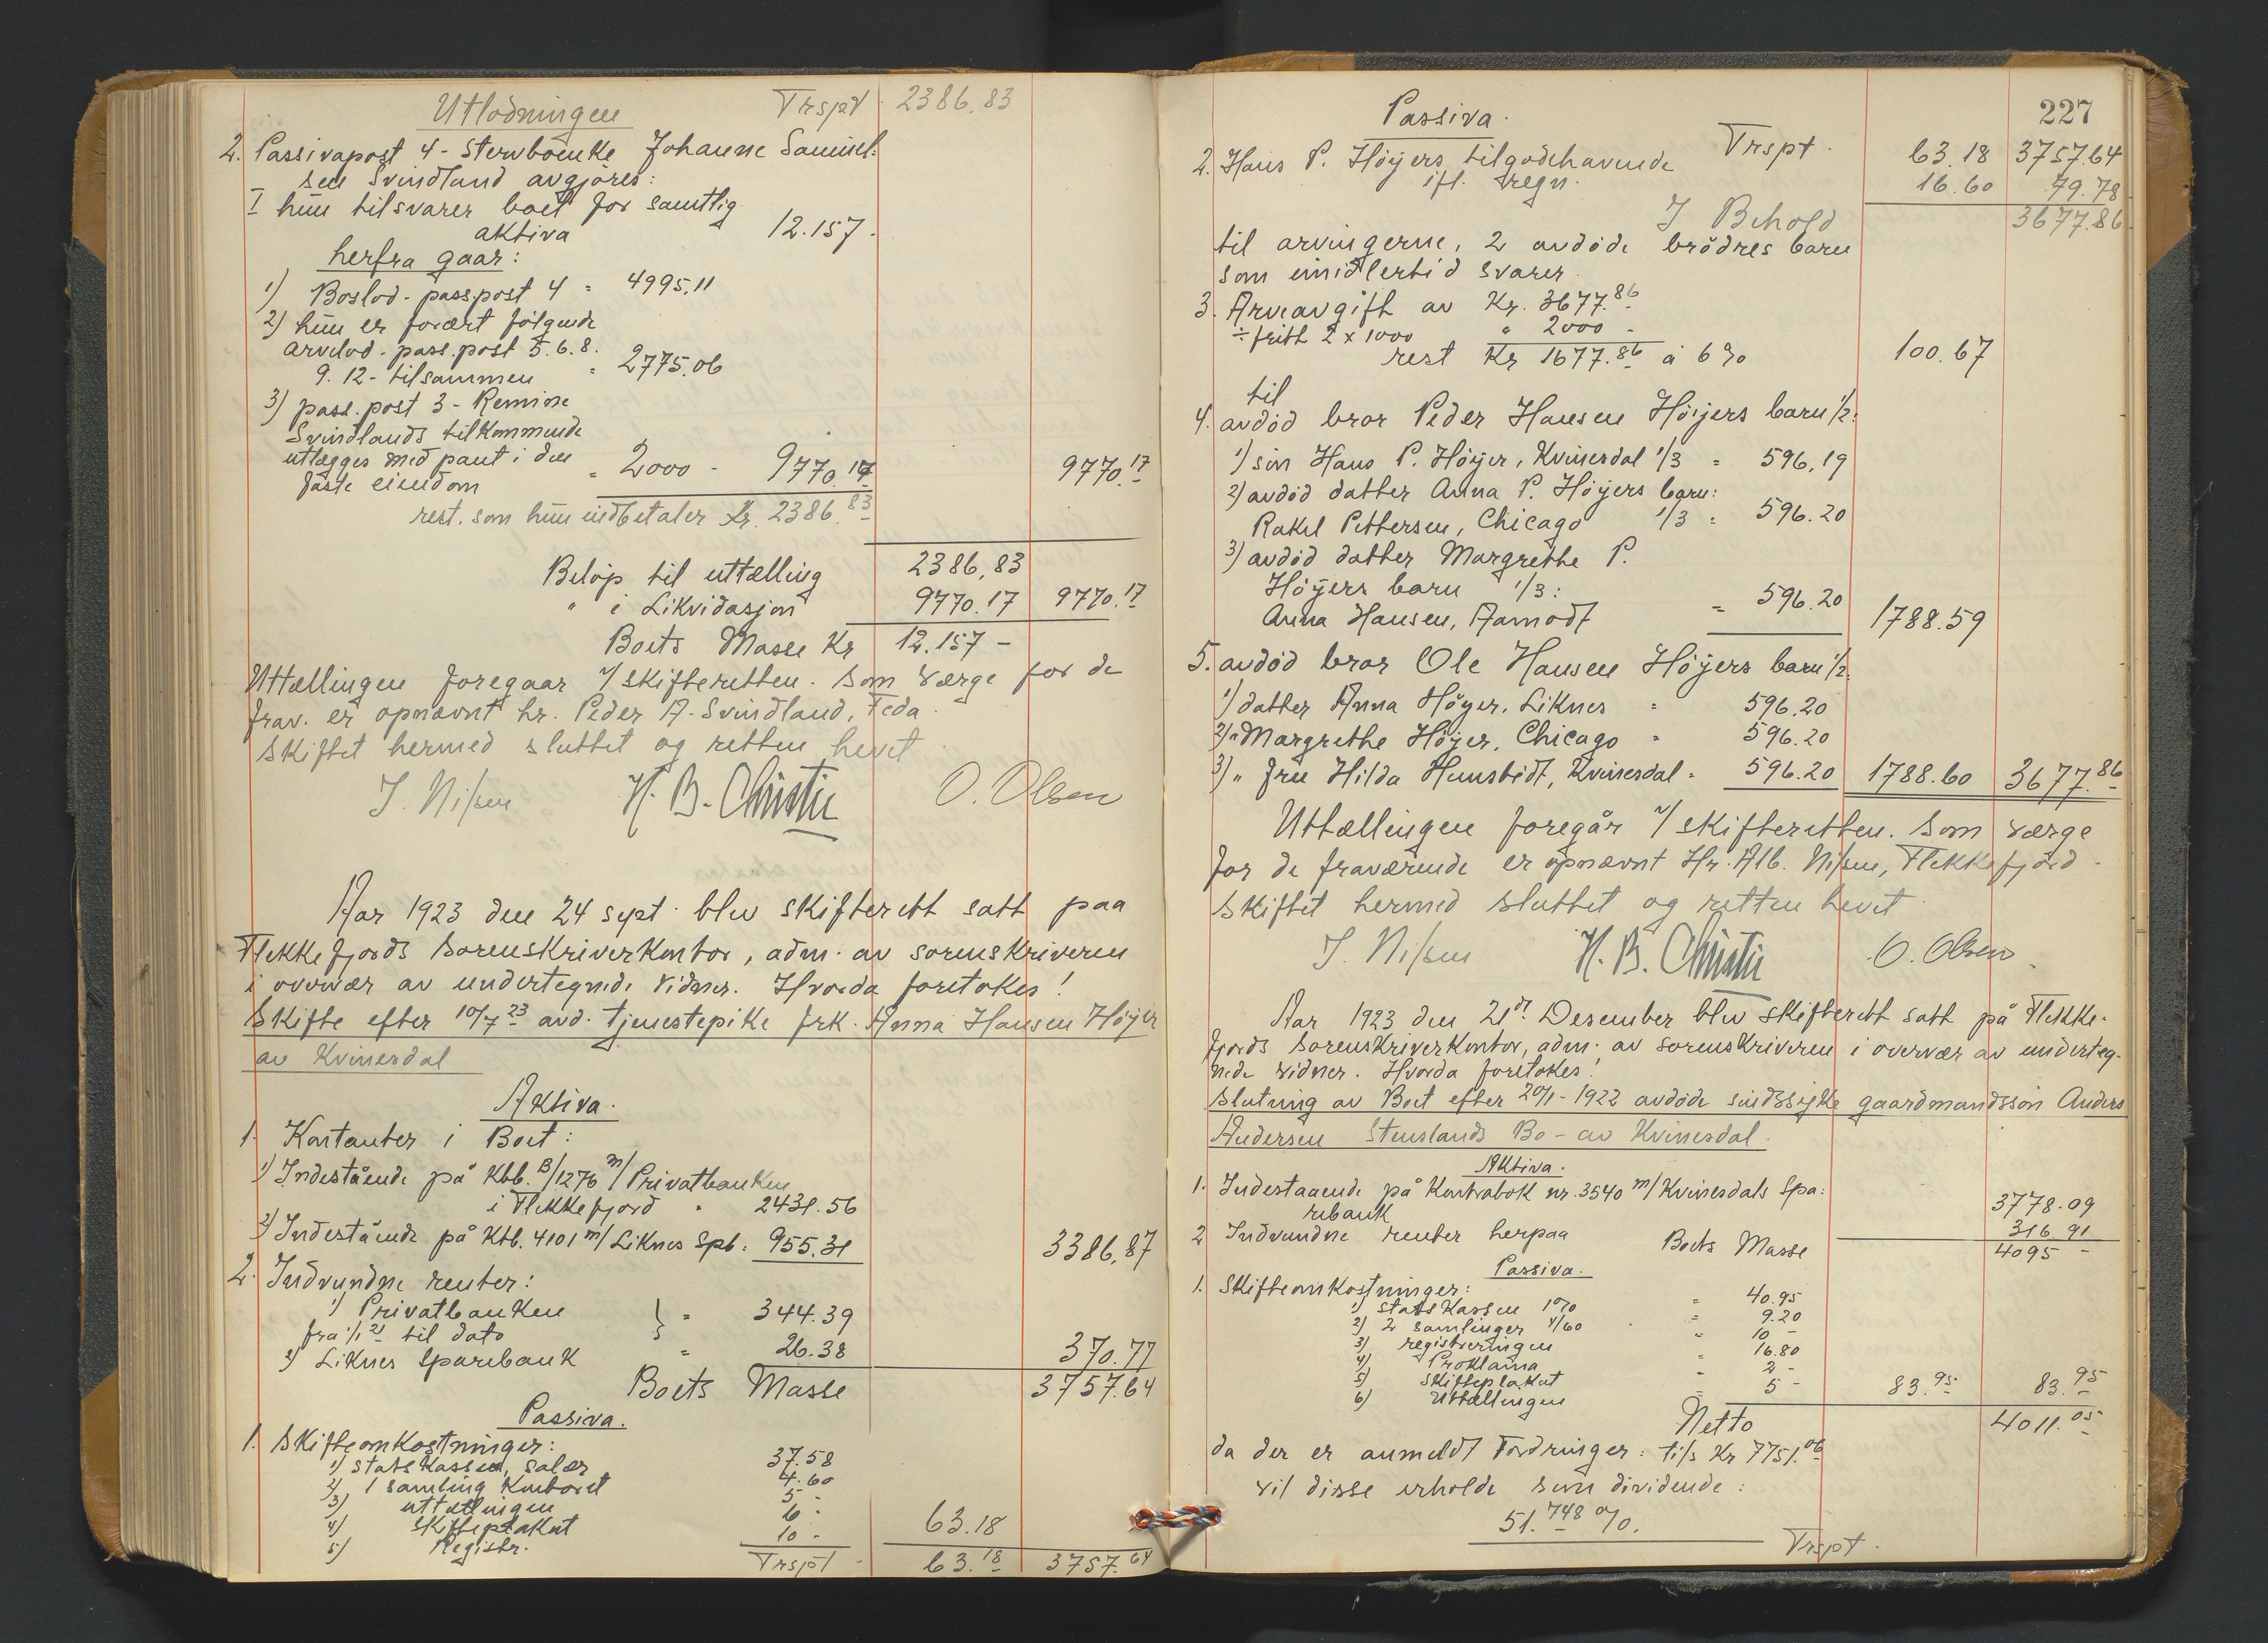 Utlodningen Trspt 2386.83
2. Passivapost 4 - Stervboenke Johanne Samuel-
sen Svindland avgjöres:
I hun tilsvarer boet for samtlig
aktiva 12.157.
herfra gaar:
1) Boslod - pass.post 4 = 4995.11
2) hun er forært følgende
arvelod. pass.post 5. 6. 8.
9. 12 - tilsammen = 2775.06
3) pass. post 3 - Remine
Svindlands tilkommende
utlægges med pant i den
faste eiendom = 2000 - 9770.17 9770.17
rest. som hun indbetaler Kr. 2386.83
Beløp til uttælling 2386.83
" i Likvidasjon 9770.17 9770.17
Boets Masse Kr 12.157 -
Uttællingen foregaar v/ skifteretten. Som værge for de
frav. er opnævnt hr. Peder A. Svindland, Feda.
Skiftet hermed sluttet og retten hevet
J. Nissen H. B. Christie O. Olsen
Aar 1923 den 24 sept. blev skifterett satt paa
Flekkefjords Sorenskriverkontor, adm. av sorenskriveren
i overvær av undertegnede vidner. Hvorda foretokes!
Skifte efter 10/7 23 avd. tjenestepike frk. Anna Hansen Höyer
av Kvinesdal
Aktiva.
1. Kontanter i Boet:
1) Indestående på Kbb. B/1276 m/ Privatbanken
i Flekkefjord " 2431.56
2) Indestående på Ktb. 4101 m/ Liknes Spb: 955.31 3386.87
2. Indvundne renter:
1) Privatbanken
fra 1/1 21 til dato } = 344.39
2) Liknes Sparebank = 26.38 370.77
Boets Masse 3757.64
Passiva.
1. Skifteomkostninger:
1) Statskassen, salær 37.58
2) 1 samling Kontoret 4.60
3) uttællingen 5 -
4) Skifteplakat 6 -
5) Registr. 10 - 63.18
Trspt - 63.18 3757.64
227
Passiva.
Trspt. 63.18 3757.64
2. Hans P. Höyers tilgodehavende
ifl. regn. 16.60 79.78
I Behold 3677.86
til arvingerne, 2 avdöde brödres barn
som imidlertid svarer
3. Arveavgift av Kr. 3677.86
÷ fritt 2 x 1000 " 2000 -
rest Kr 1677.86 à 6% 100.67
til
4. avdöd bror Peder Hansen Höijers barn 1/2:
1) sön Hans P. Höyer, Kvinesdal 1/3 = 596.19
2) avdöd datter Anna P. Höyers barn:
Rakel Pettersen, Chicago 1/3 = 596.20
3) avdöd datter Margrethe P.
Höyers barn 1/3:
Anna Hansen, Aamodt = 596.20 1788.59
5. avdöd bror Ole Hansen Höyers barn 1/2:
1) datter Anna Höyer, Liknes = 596.20
2) " Margrethe Höyer, Chicago " 596.20
3) " fru Hilda Hunstedt, Kvinesdal = 596.20 1788.60 3677.86
Uttællingen foregår v/ skifteretten. Som værge
for de fraværende er opnævnt Hr. Alb. Nissen, Flekkefjord.
Skiftet hermed sluttet og retten hevet
J. Nissen H. B. Christie O. Olsen
Aar 1923 den 21de Desember blev skifterett satt på Flekke-
fjords Sorenskriverkontor, adm. av sorenskriveren i overvær av underteg-
nede vidner. Hvorda foretokes!
Slutning av Boet efter 20/1 - 1922 avdöde sindssyke gaardmandssön Anders
Andersen Stenslands Bo - av Kvinesdal.
Aktiva.
1. Indestaaende på Kontrabok nr. 3540 m/ Kvinesdals Spa-
rebank 3778.09
2 Indvundne renter herpaa 316.91
Boets Masse 4095 -
Passiva.
1. Skifteomkostninger:
1) Statskassen 1% = 40.95
2) 2 samlinger 4/60 = 9.20
3) registreringen " 10 -
4) Proklama " 16.80
5) Skifteplakat " 2 -
6) Uttællingen = 5 - 83.95 83.95
Netto 4011.05
da der er anmeldt Fordringer: til Kr 7751.06
vil disse erholde som dividende:
51.748 %.
Trspt.